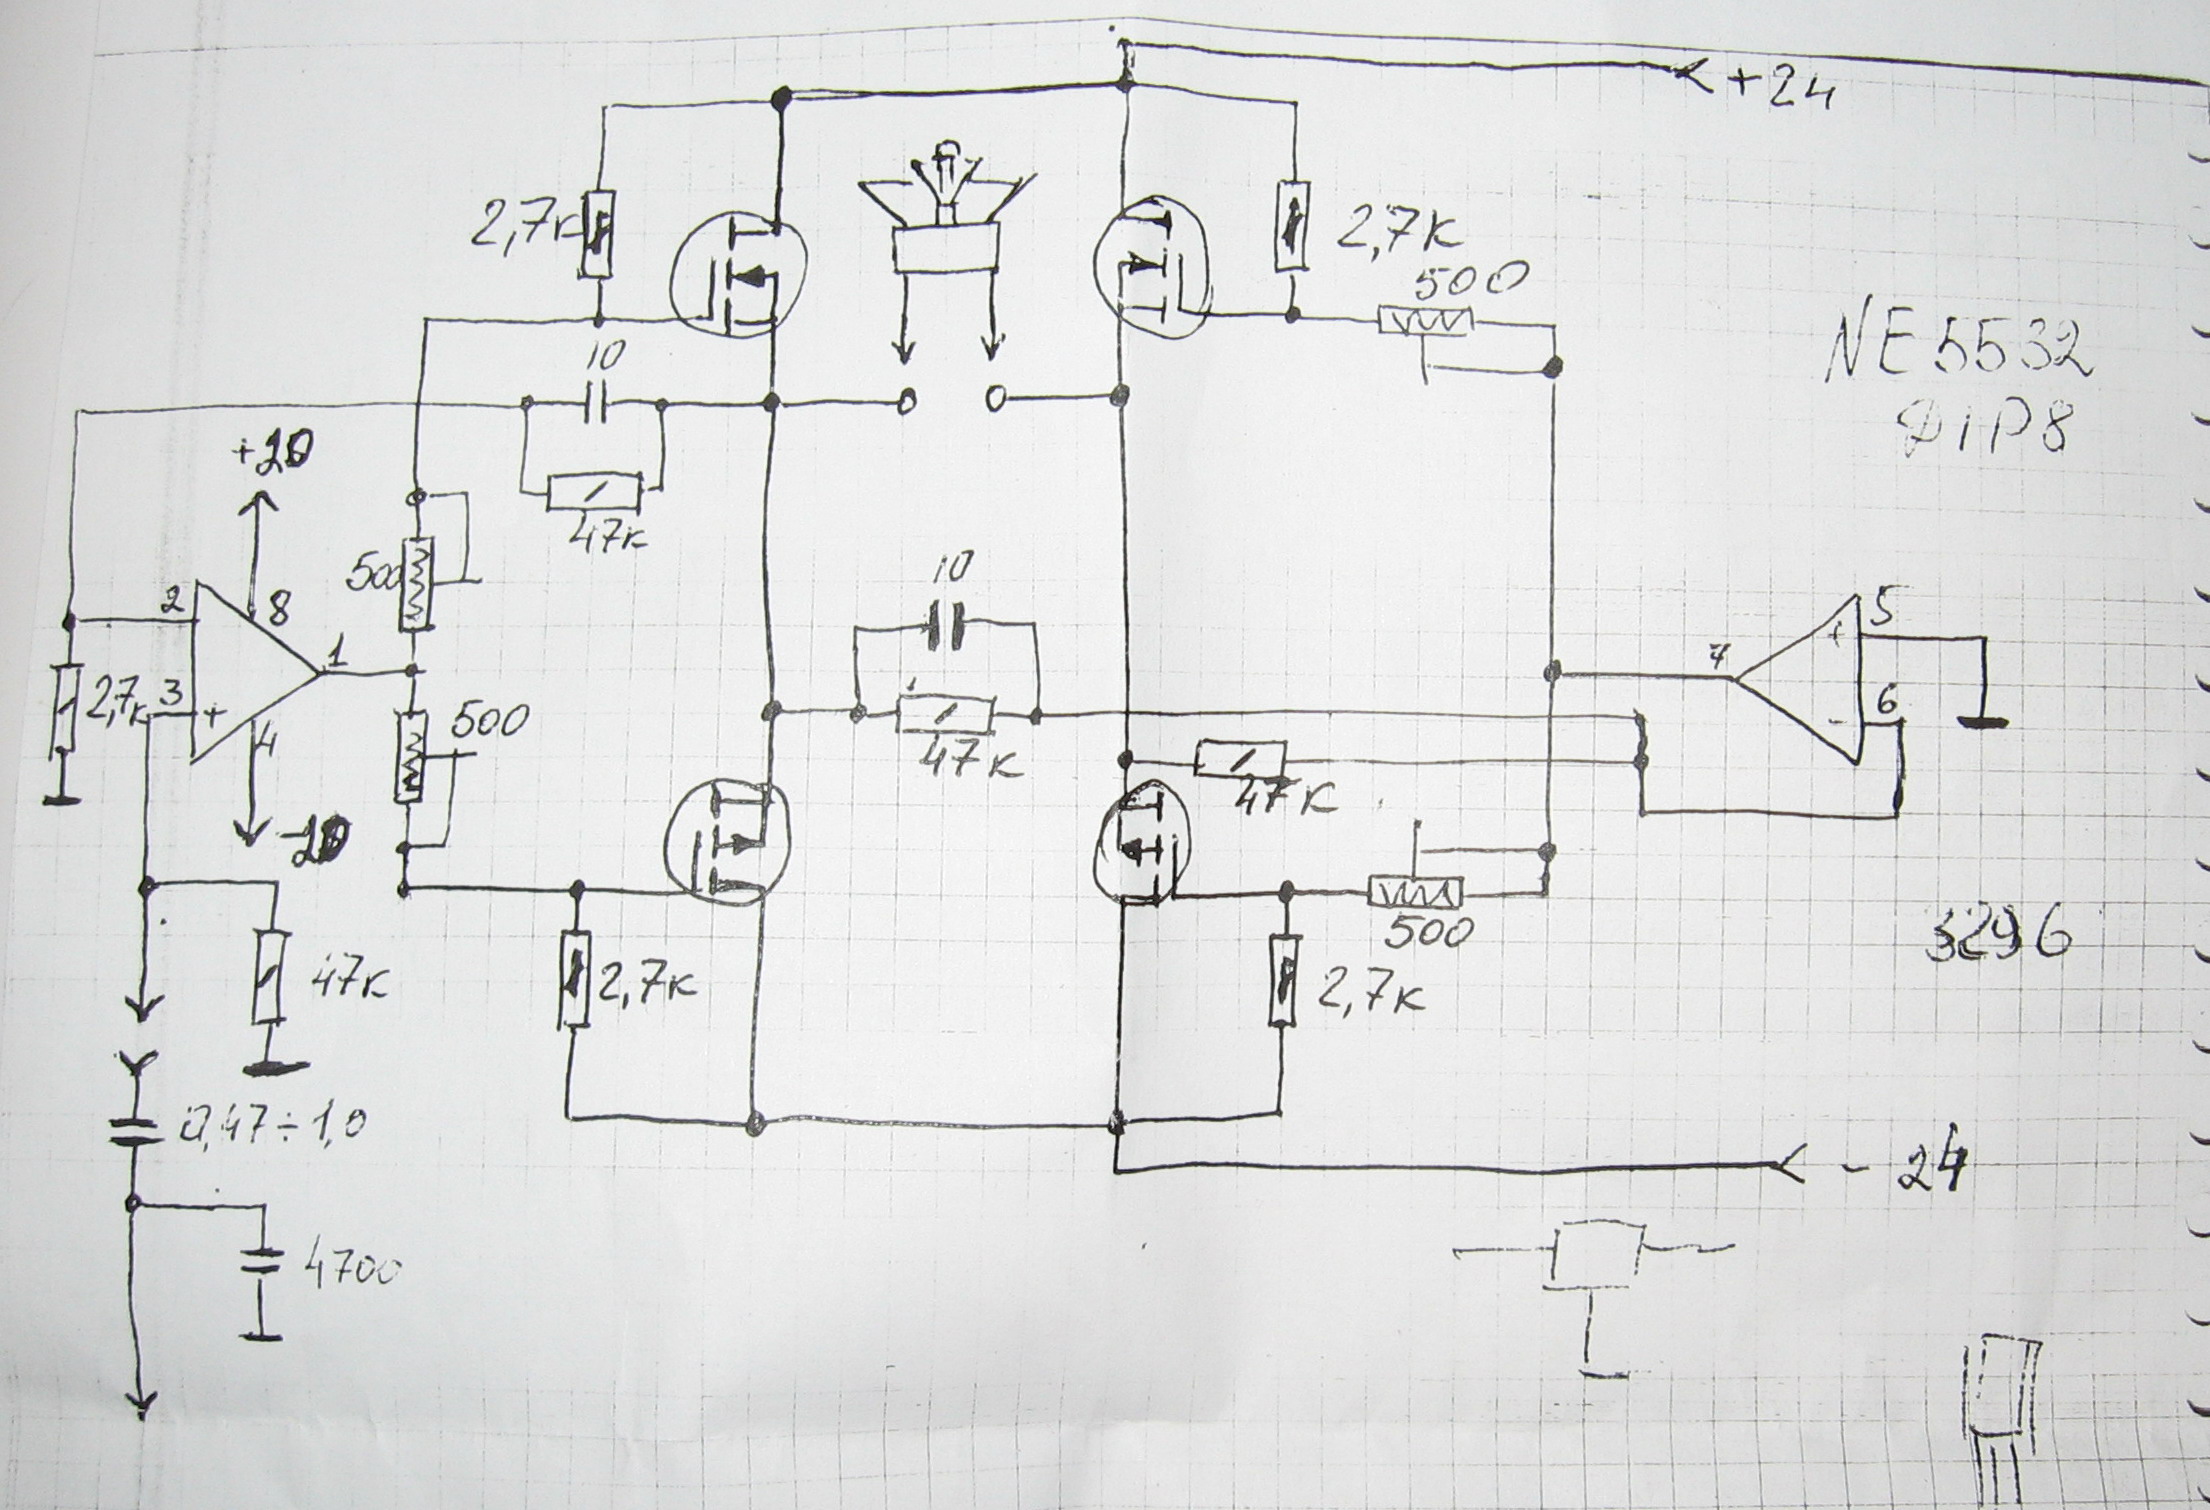 +24
2,7к
2,7к
500
10
NE5532
DIP8
+20
47к
500
10
2
8
1
5
7
2,7к
3
+
500
+
6
-
4
47к
47к
-20
500
3296
47к
2,7к
2,7к
0,47÷1,0
- 24
4700